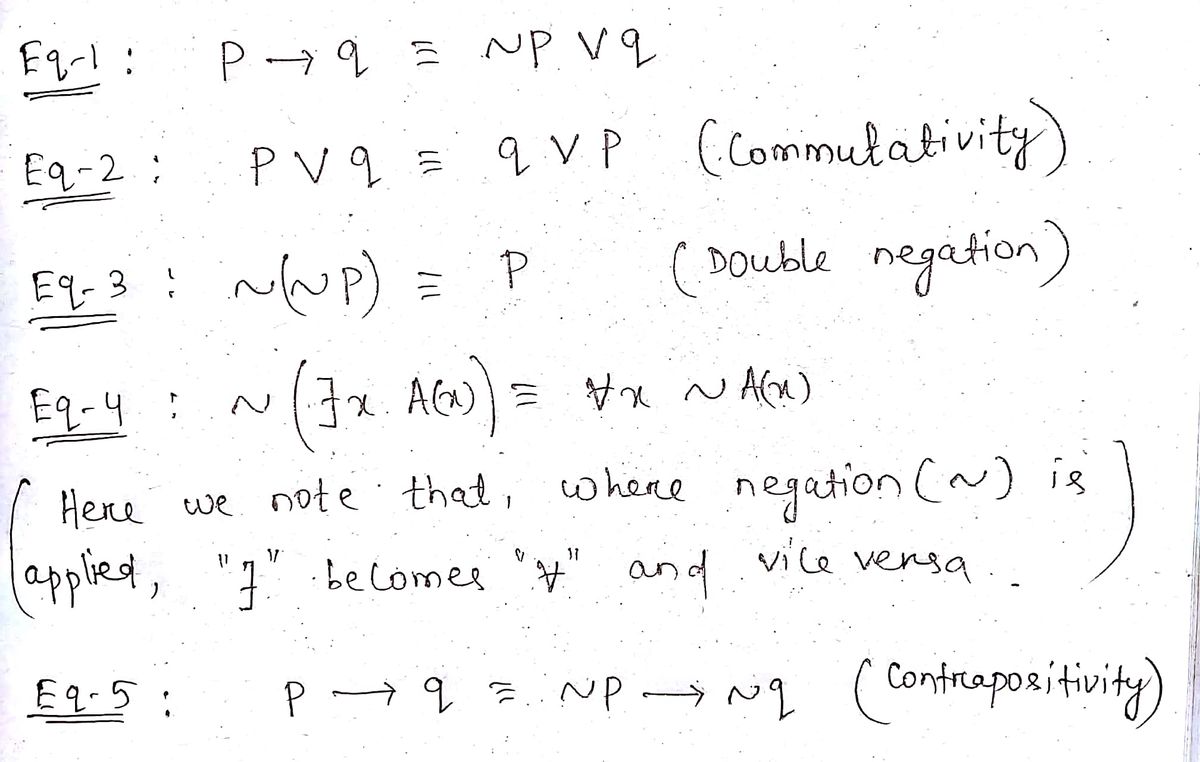 Eq-1 : P → q ≡ ~P ∨ q
Eq-2 : P ∨ q ≡ q ∨ P (Commutativity)
Eq-3 : ~(~P) ≡ P (Double negation)
Eq-4 : ~(∃x A(x)) ≡ ∀x ~A(x)
(Here we note that, where negation (~) is
applied, "∃" becomes "∀" and vice versa.)
Eq-5 : P → q ≡ ~P → ~q (Contrapositivity)